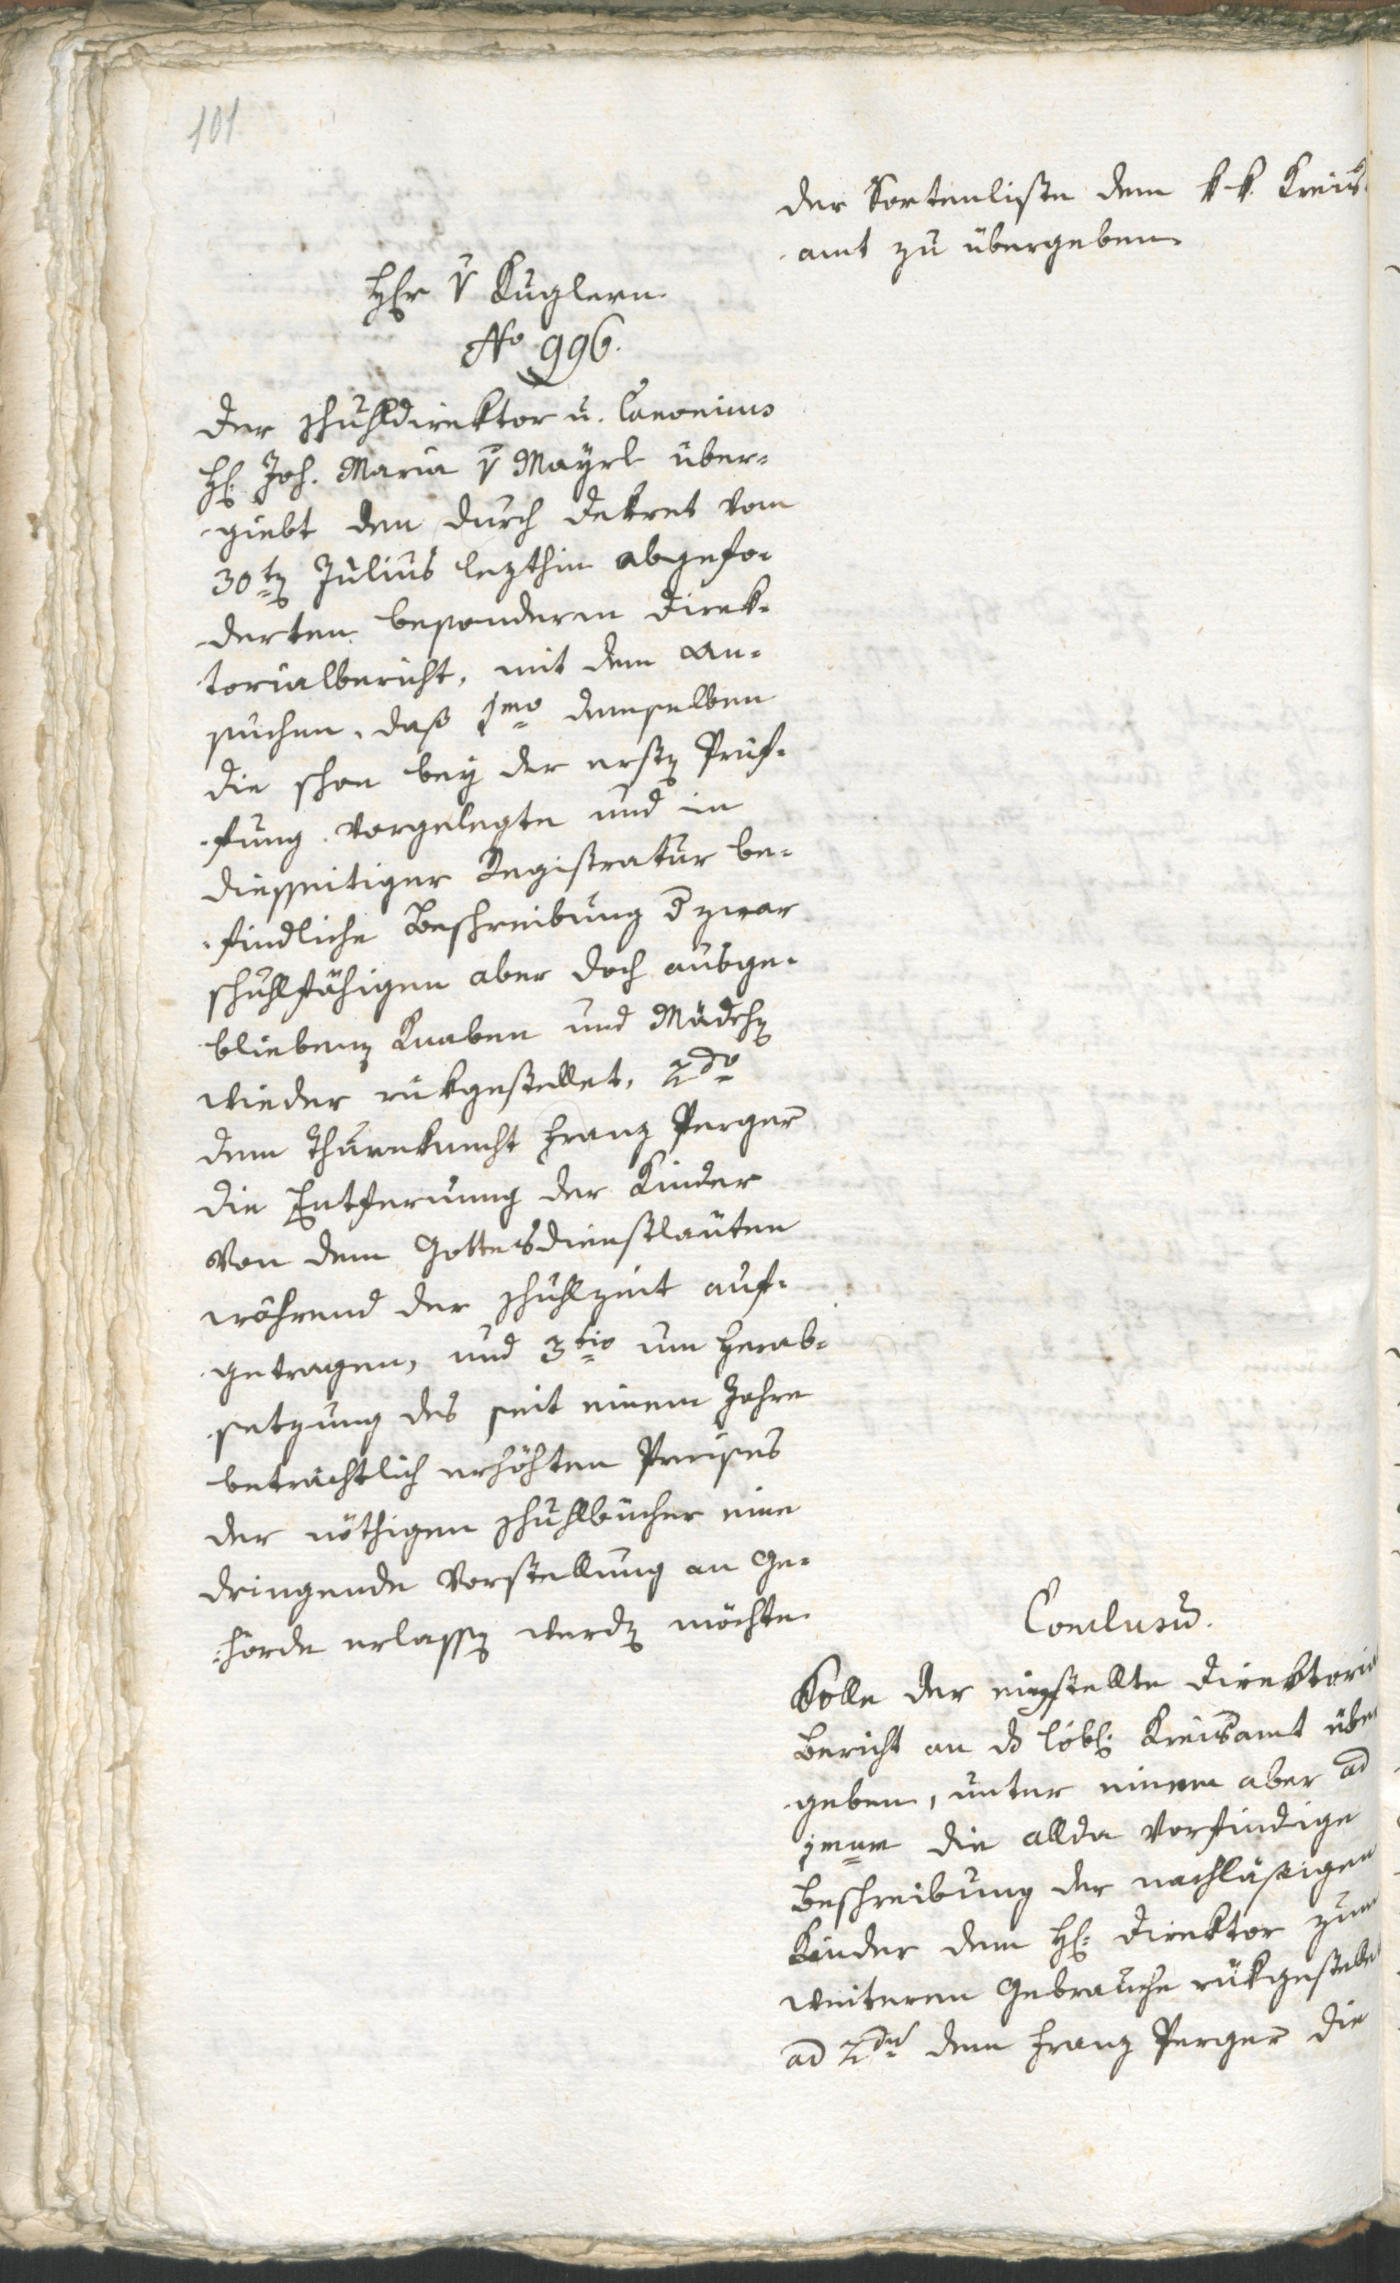 101
der Sortenliste dem k. k. Kreis-
amt zu übergeben.
Hr v Kuglern
No 996.
Der Schuhldirektor u. Canonicus
H: Joh. Maria v Mayrl über-
giebt den durch Dekret vom
30ten Julius lezthin abgefo-
derten besondern Direk-
torialbericht, mit dem An-
suchen, daß 1mo demselben
die schon bey der ersten Prüf-
fung vorgelegte und in
diesseitiger Registratur be-
findliche Beschreibung d zwar
schuhlfähigen aber doch ausge-
bliebenen Knaben und Mädchen
wieder rükgestellet, 2do
dem Thurnknecht Franz Perger
die Entfernung der Kinder
von dem Gottesdienstläuten
während der Schuhlzeit auf-
getragen, und 3tio um Herab-
setzung des seit einem Jahre
beträchtlich erhöhten Preises
der nöthigen Schuhlbücher eine
dringende Vorstellung an Ge-
hörde erlassen werden möchte.
Conclusum.
Solle der eingestellte Direktorial
Bericht an das löbl: Kreisamt über
geben, unter einem aber ad
1mum die allda vorfindige
Beschreibung der nachläßigen
Kinder dem H: Direktor zum
weiteren Gebrauche rükgestellet
ad 2dum dem Franz Perger die